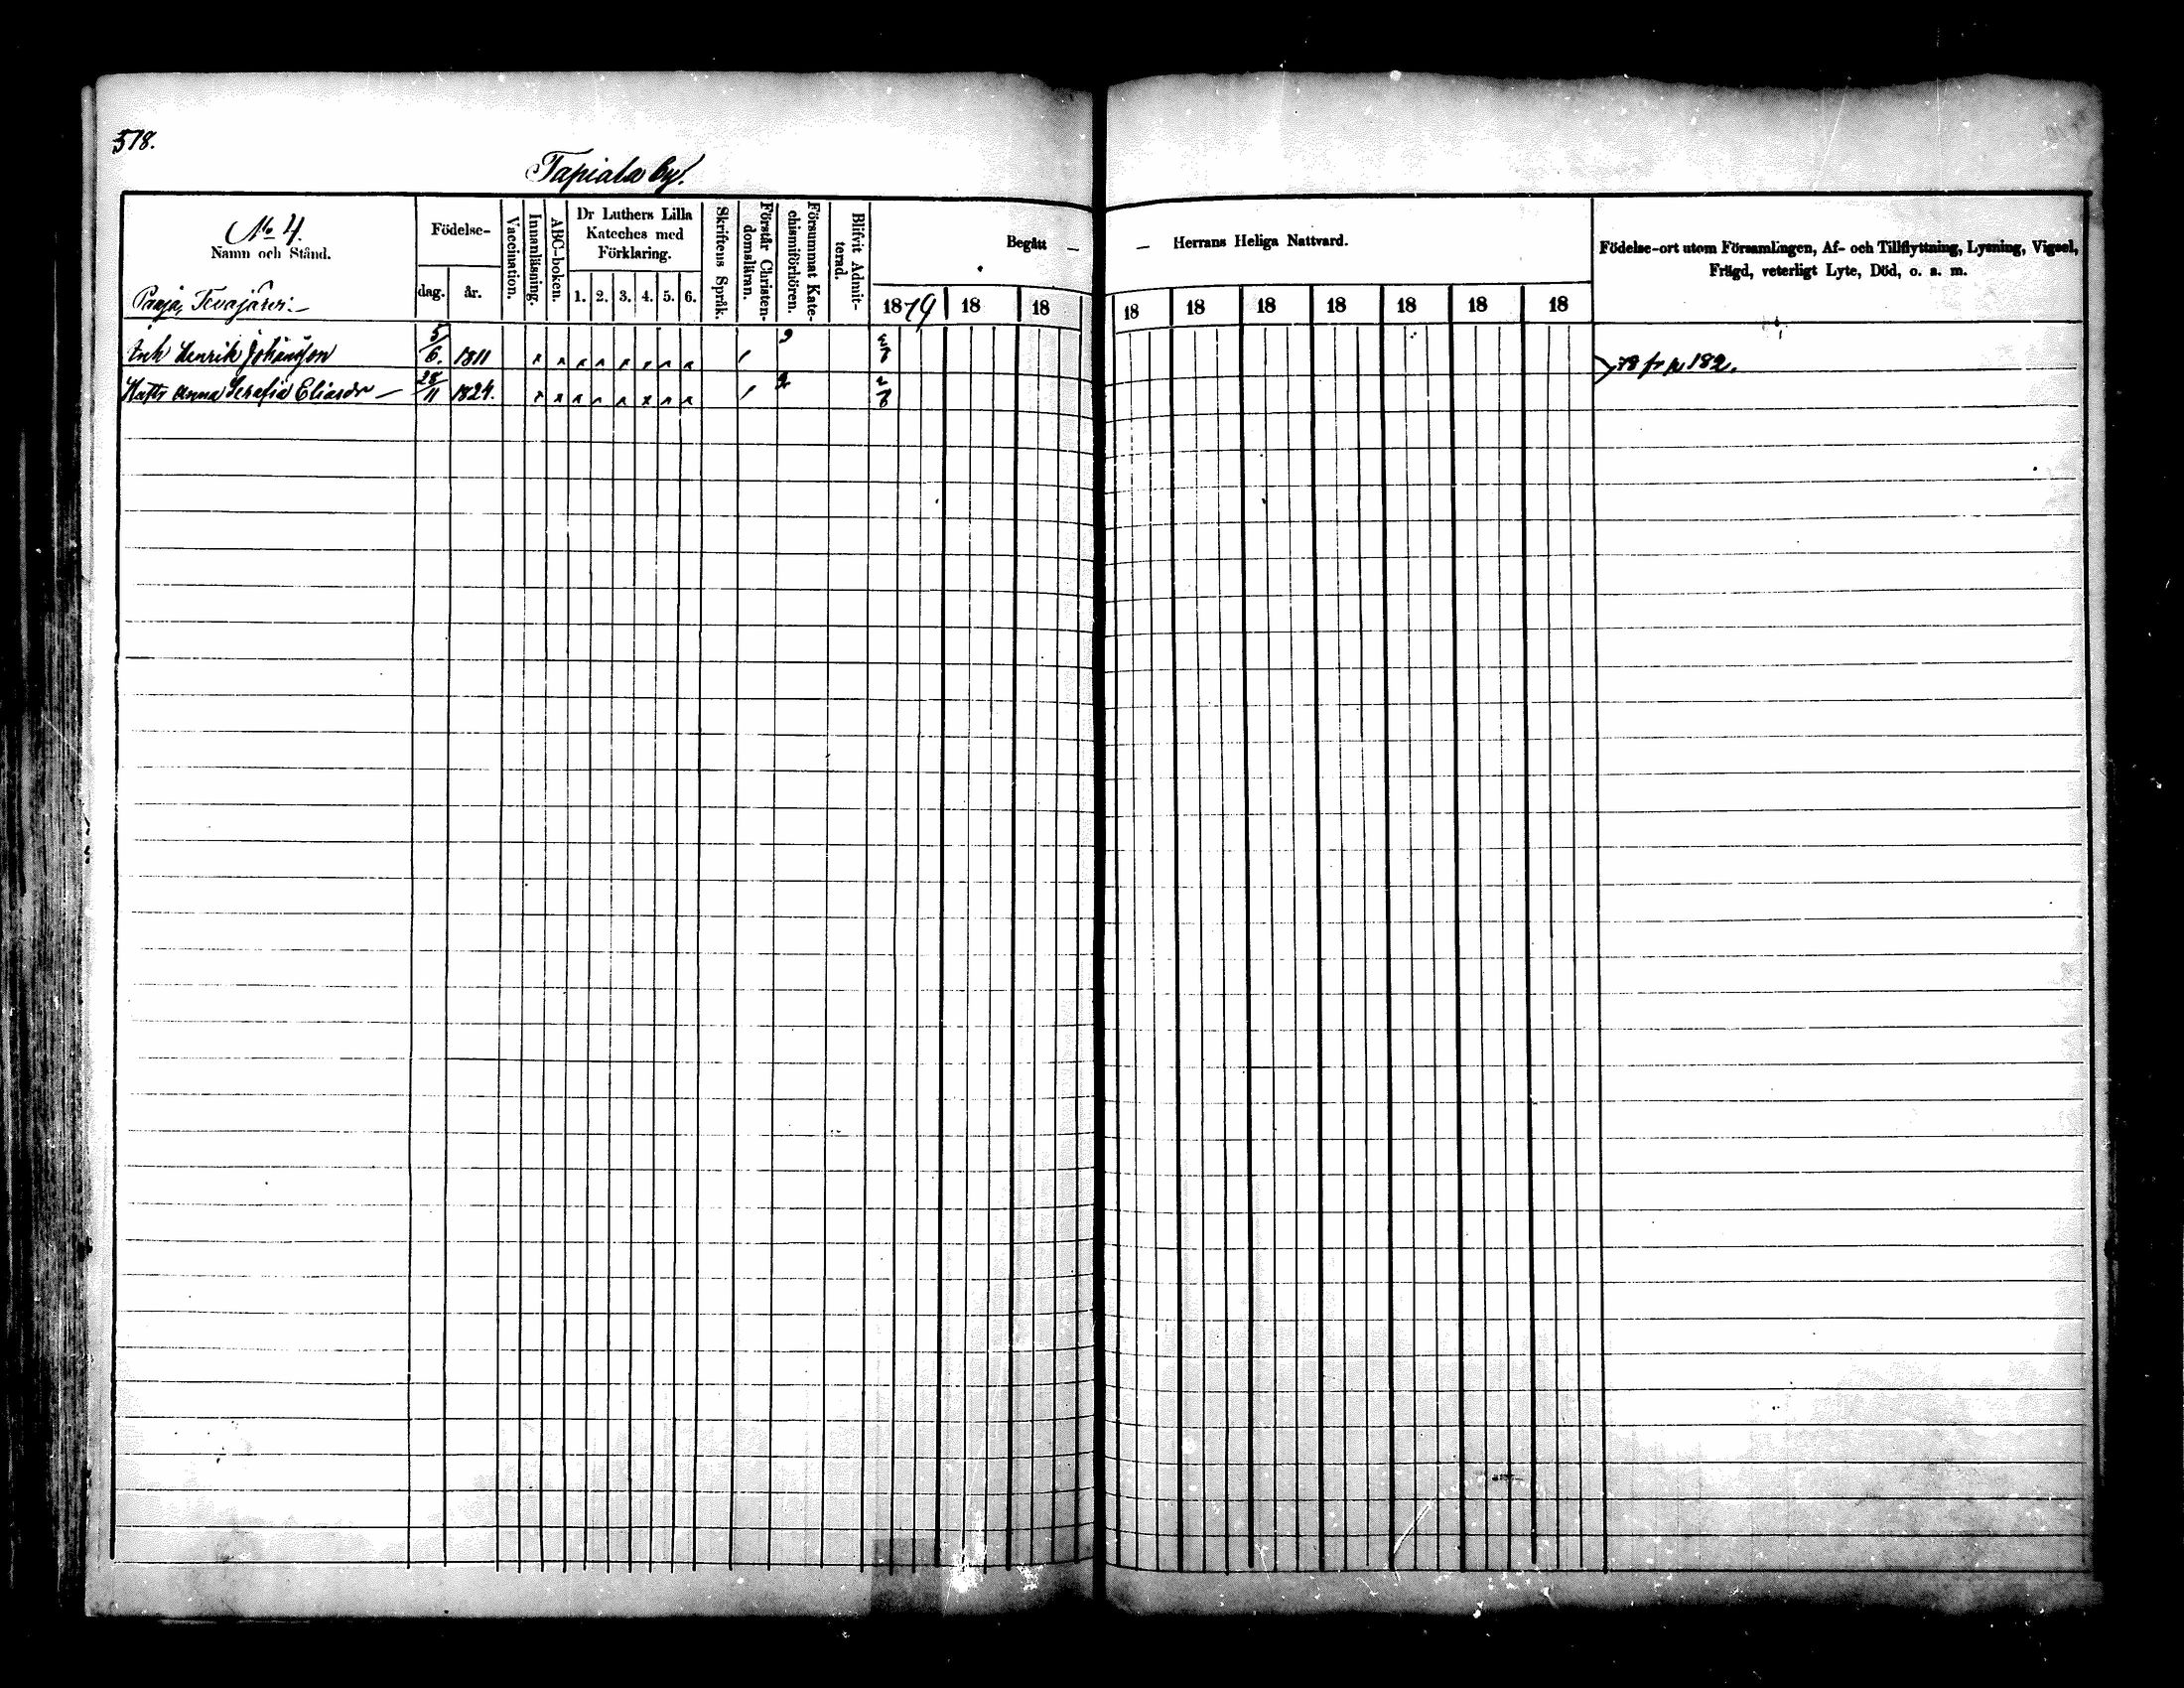 518.
Tapiala by.
No 4.
Namn och Stånd.
Födelse-
dag. år.
Vaccination.
Innanläsning.
ABC-boken.
Dr Luthers Lilla
Kateches med
Förklaring.
1. 2. 3. 4. 5. 6.
Skriftens Språk.
Förstår Christen-
domsläran.
Försummat Kate-
chismiförhören.
Blifvit Admit-
terad.
Begått —
— Herrans Heliga Nattvard.
1879 18 18 18 18 18 18 18 18 18
Födelse-ort utom Församlingen, Af- och Tillflyttning, Lysning, Vigsel,
Frägd, veterligt Lyte, Död, o. s. m.
Henrik Johansson 5/6. 1811
78 fr p 182.
Anna Serafia Eliasdr — 28/11 1824. 2